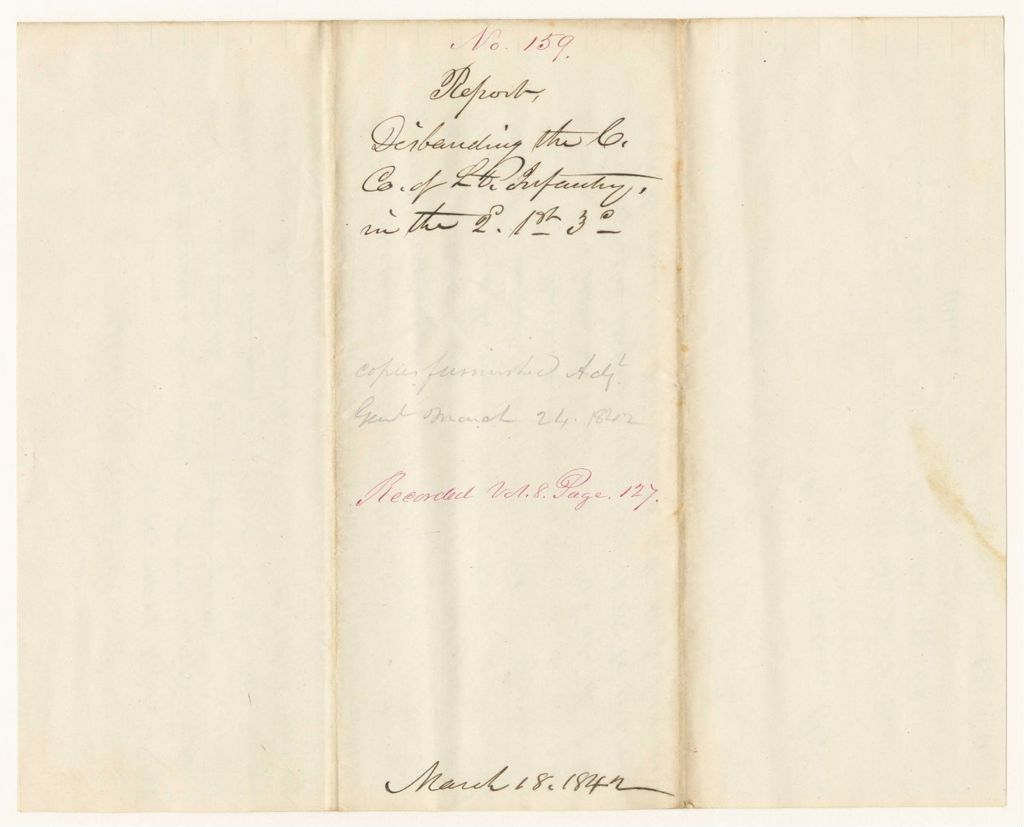 No. 159.
Report,
Disbanding the C.
Co. of Lt. Infantry,
in the 2d. 1st 3d
copies furnished Adjt
Genl March 24. 1842
Recorded Vol. 8. Page. 127.
March 18. 1842